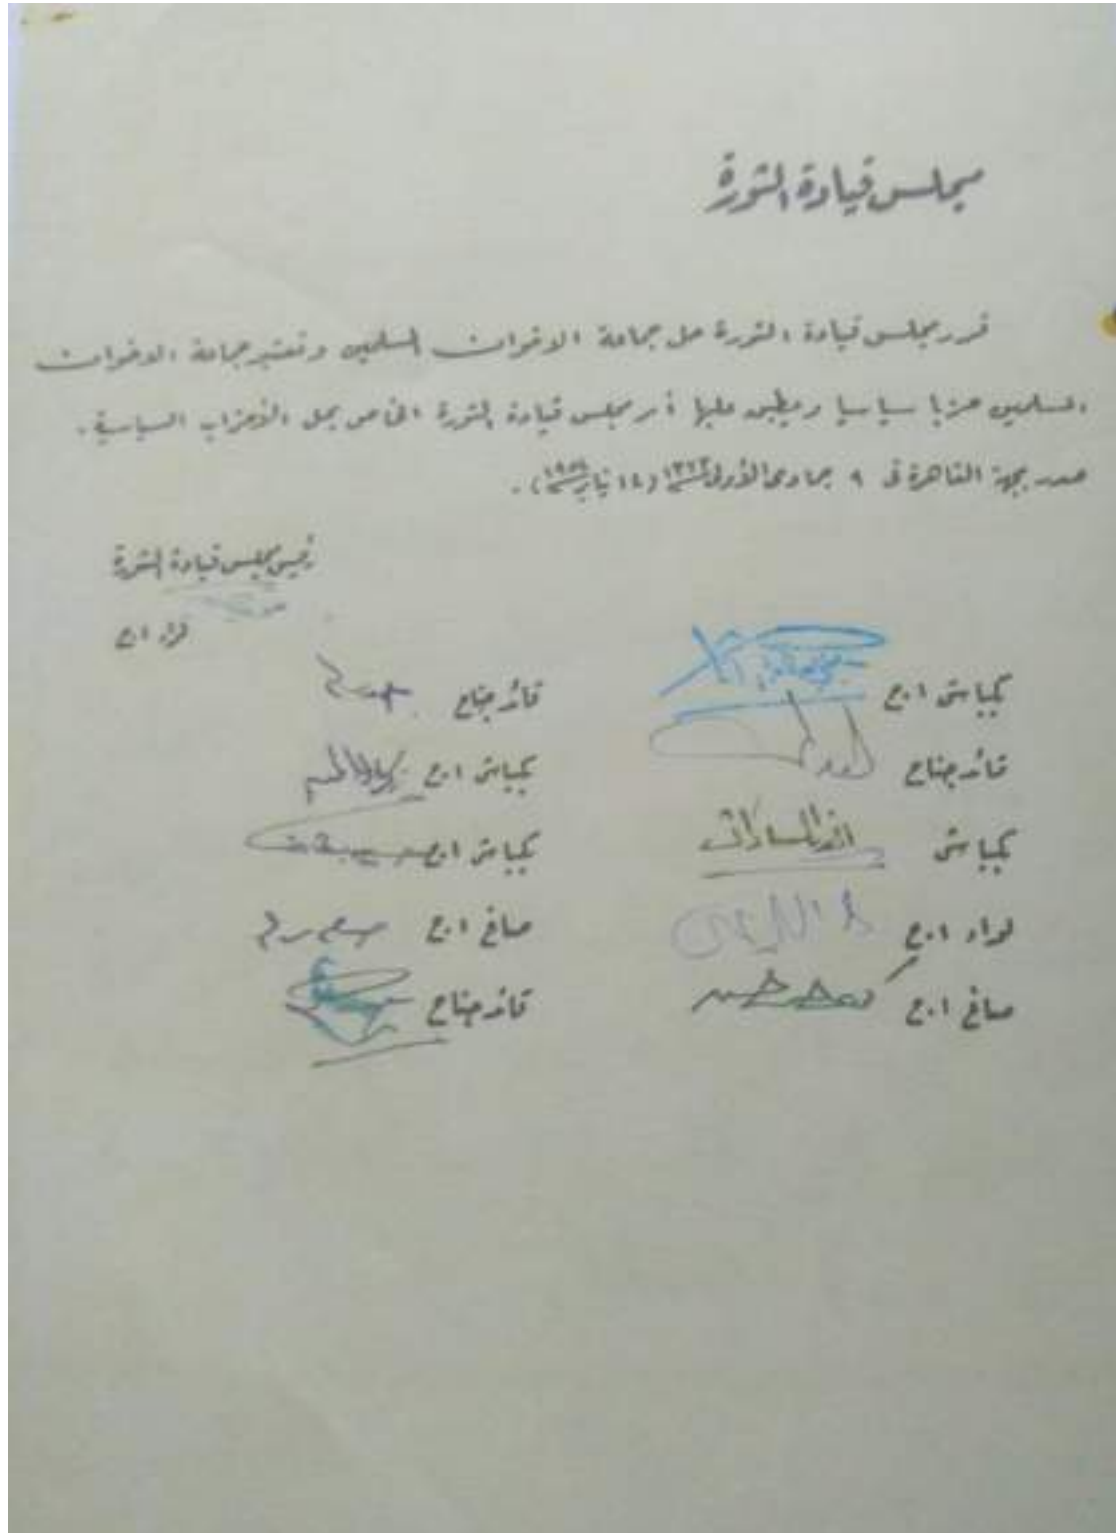 مجلس قيادة الثورة
قرر مجلس قيادة الثورة حل جماعة الاخوان المسلمين وتعتبر جماعة الاخوان
المسلمين حزبا سياسيا ويطبق عليها أمر مجلس قيادة الثورة الخاص بحل الأحزاب السياسية.
صدر بجهة القاهرة فى ٩ جمادى الأولى سنة ١٣٧٣ (١٤ يناير سنة ١٩٥٤).
رئيس مجلس قيادة الثورة
لواء ا.ح
بكباشى ا.ح
قائد جناح
قائد جناح
بكباشى ا.ح
بكباشى أنور السادات
بكباشى ا.ح
لواء ا.ح
صاغ ا.ح
صاغ ا.ح
قائد جناح